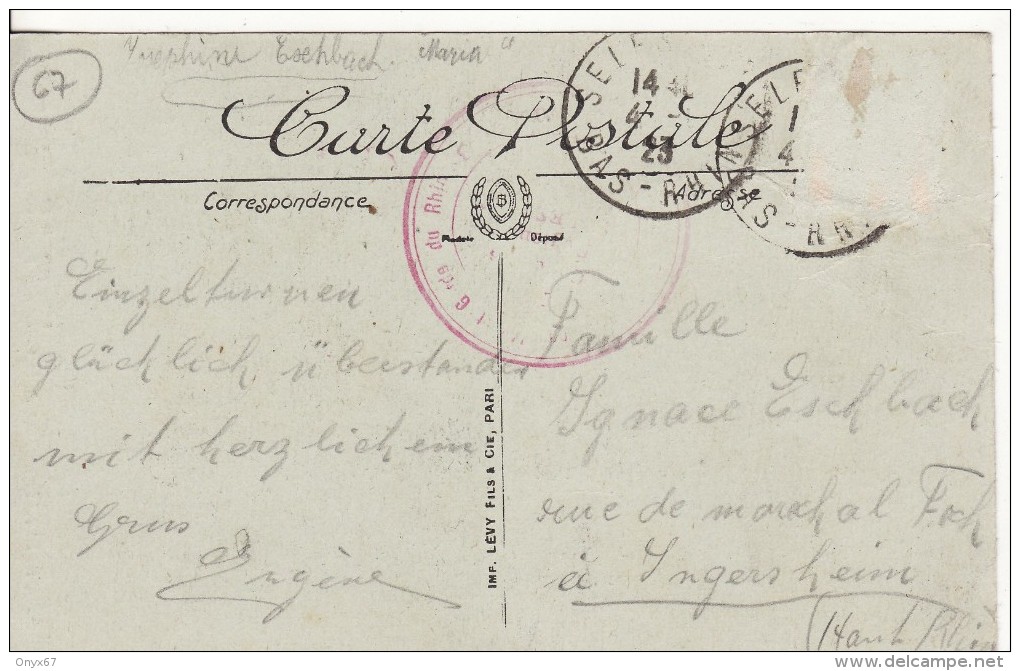 67
Eschbach Maria
Carte Postale
Correspondance
Adresse
Modèle Déposé
B
SEL
14
4
23
BAS-RHIN
SEL
1
4
BAS-RH
du Rhin
Einzelturnen
glücklich überstanden
mit herzlichem
Grus
Eugène
IMP. LÉVY FILS & CIE, PARI
Famille
Ignace Eschbach
rue de marchal Foch
à Ingersheim
(Haut Rhin
Onyx67
www.delcampe.net